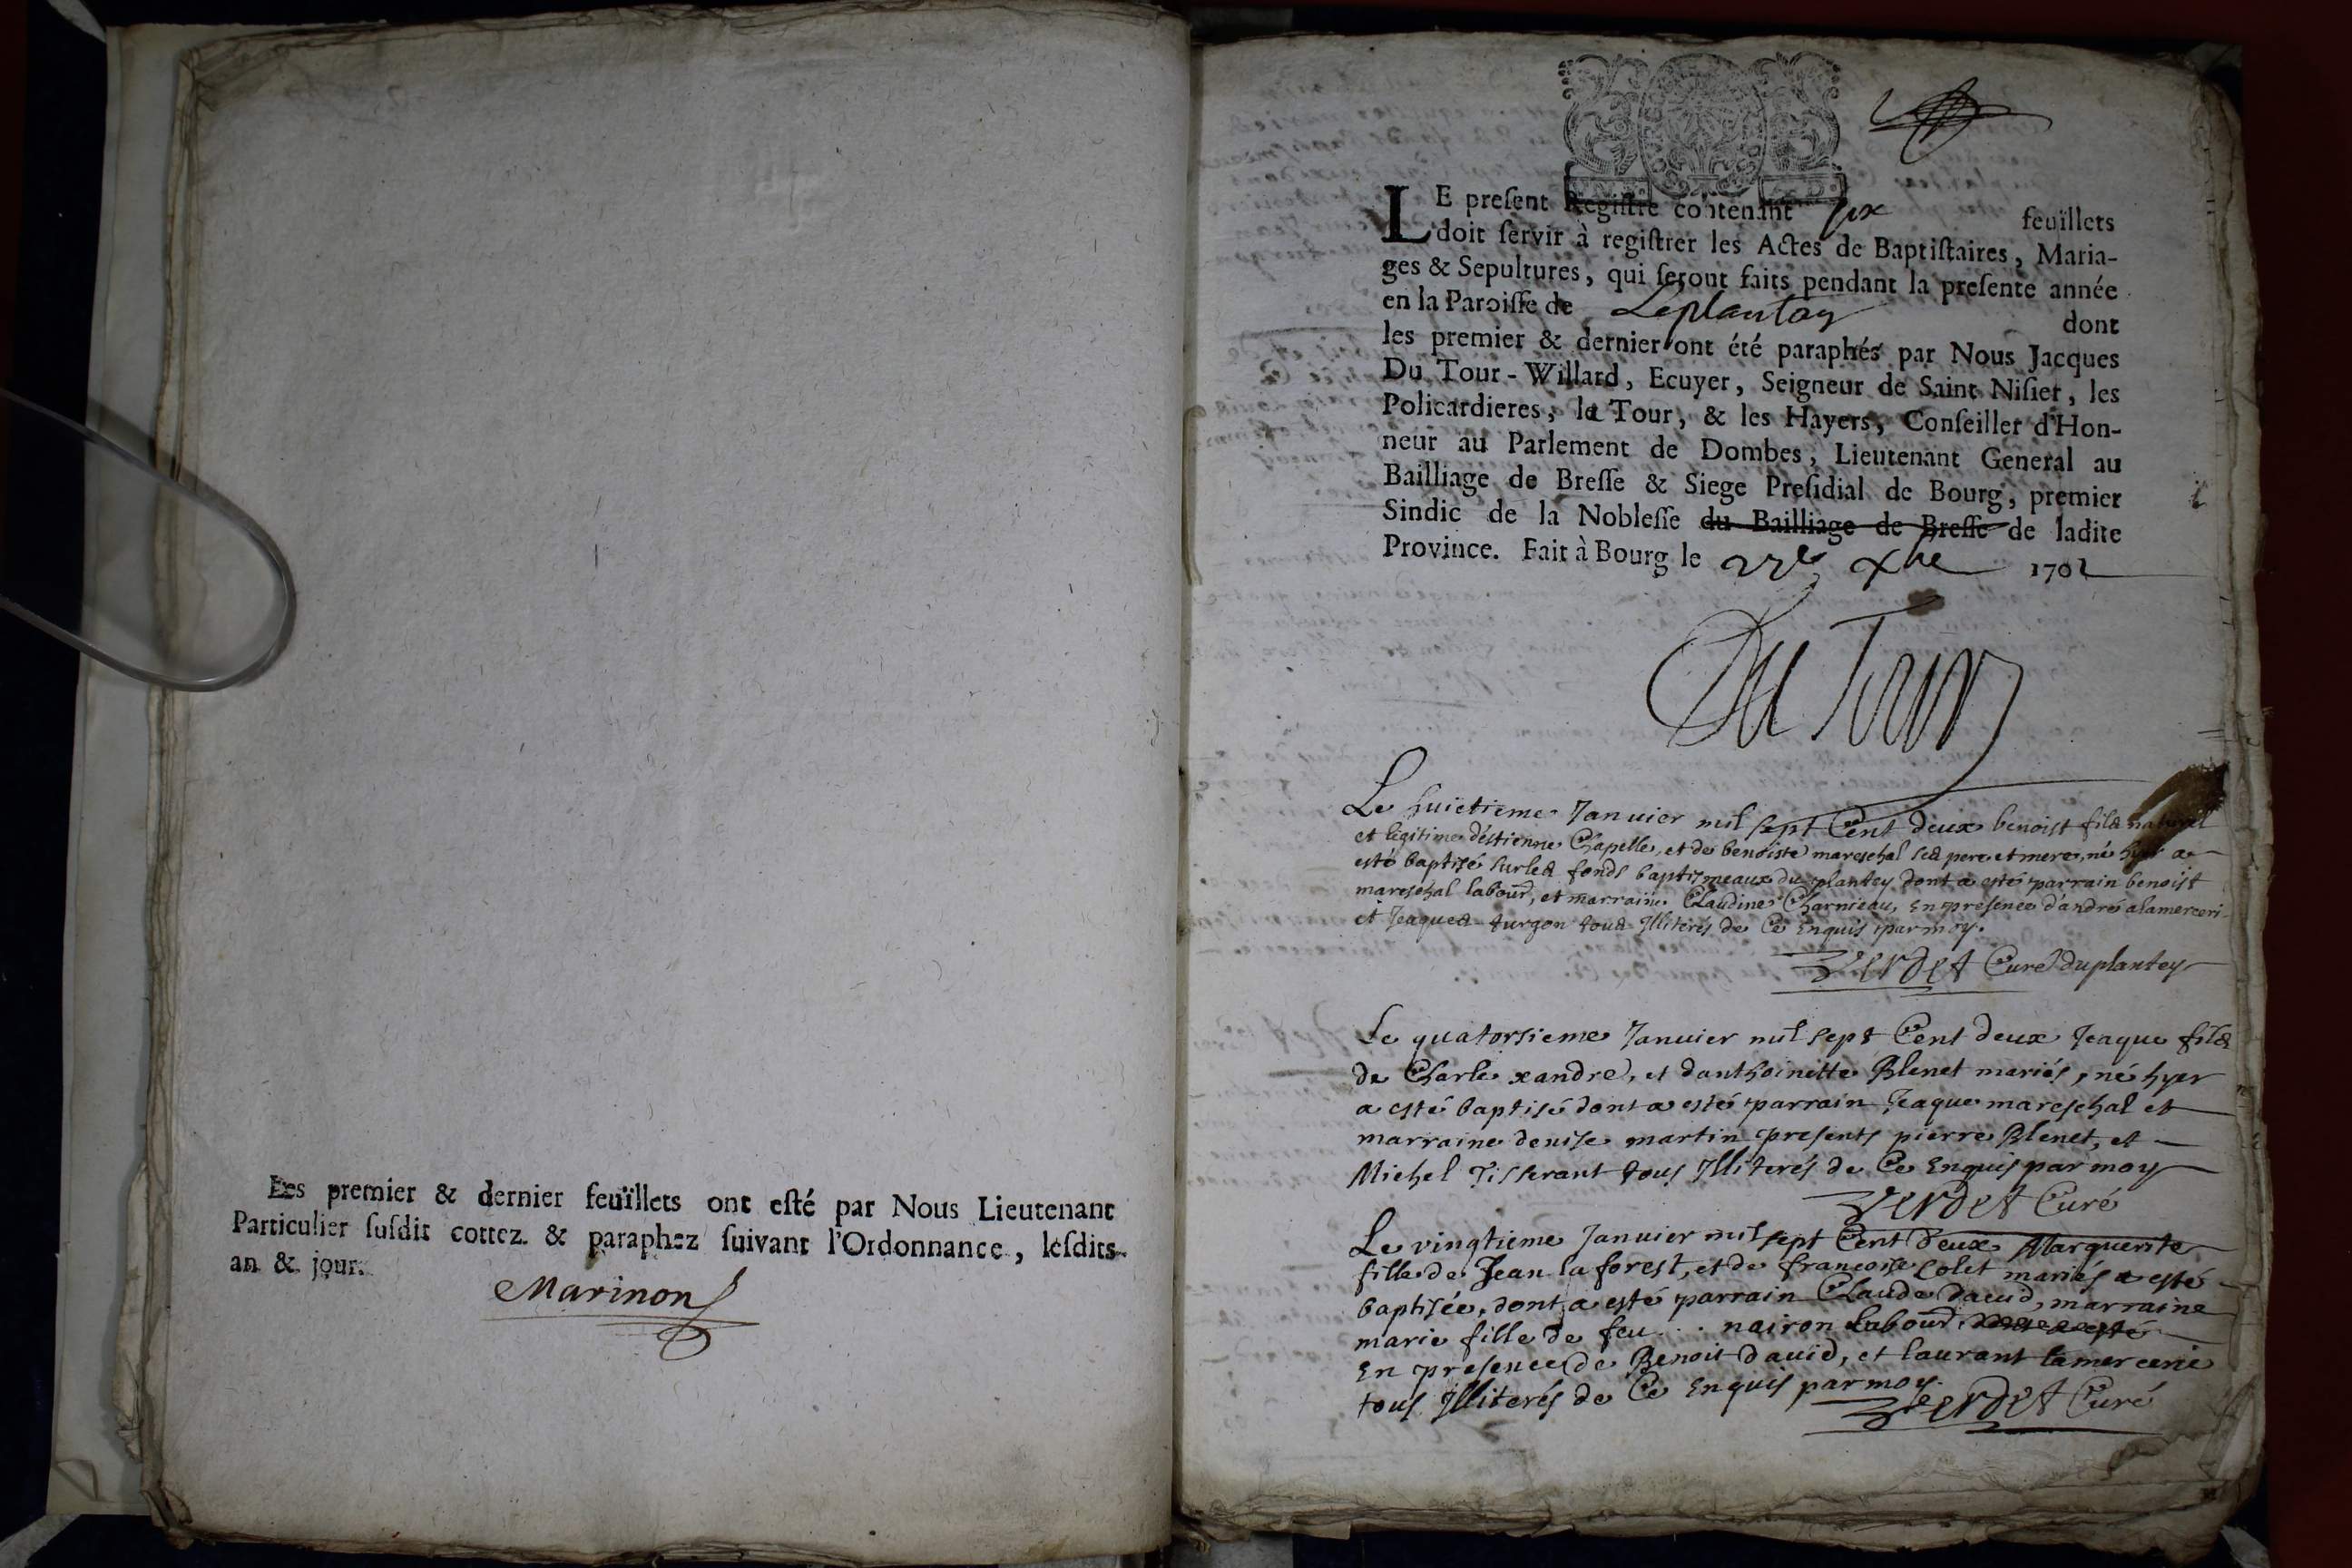 Les premier & dernier feuïllets ont esté par Nous Lieutenant
Particulier susdit cottez & paraphez suivant l'Ordonnance, lesdits
an & jour.
Marinon
LE present Registre contenant six feuïllets
doit servir à registrer les Actes de Baptistaires, Maria-
ges & Sepultures, qui seront faits pendant la presente année
en la Paroisse de Leplantay dont
les premier & dernier ont été paraphés par Nous Jacques
Du Tour-Willard, Ecuyer, Seigneur de Saint Nisier, les
Policardieres, la Tour, & les Hayers, Conseiller d'Hon-
neur au Parlement de Dombes, Lieutenant General au
Bailliage de Bresse & Siege Presidial de Bourg, premier
Sindic de la Noblesse du Bailliage de Bresse de ladite
Province. Fait à Bourg le xbre 1701
Du Tour
Le huictieme Janvier mil sept Cent deux benoist fils naturel
et legitime d'estienne Chapelle, et de benoiste mareschal ses pere et mere, né hyer a
esté baptisé sur les fonds baptismeaux du plantey dont a esté parrain benoist
mareschal labour, et marraine Claudine Charnieau, En presence d'andré alamerceri
et Jeaques turgon tous Illiterés de Ce Enquis par moy.
Verdet Curé du plantey
Le quatorsieme Janvier mil sept Cent deux Jeaque fils
de Charle xandre, et danthoinette Blenet mariés, né hyer
a esté baptisé dont a esté parrain Jeaque mareschal et
marraine denise martin presents pierre Blenet, et
Michel Tisserant tous Illiterés de Ce Enquis par moy
Verdet Curé
Le vingtieme Janvier mil sept Cent deux Marguerite
fille de Jean laforest, et de françoise Colet mariés a esté
baptisée, dont a esté parrain Claude david, marraine
marie fille de feu ... nairon labour
En presence de Benoit david, et laurant lamercerie
tous Illiterés de Ce Enquis par moy.
Verdet Curé